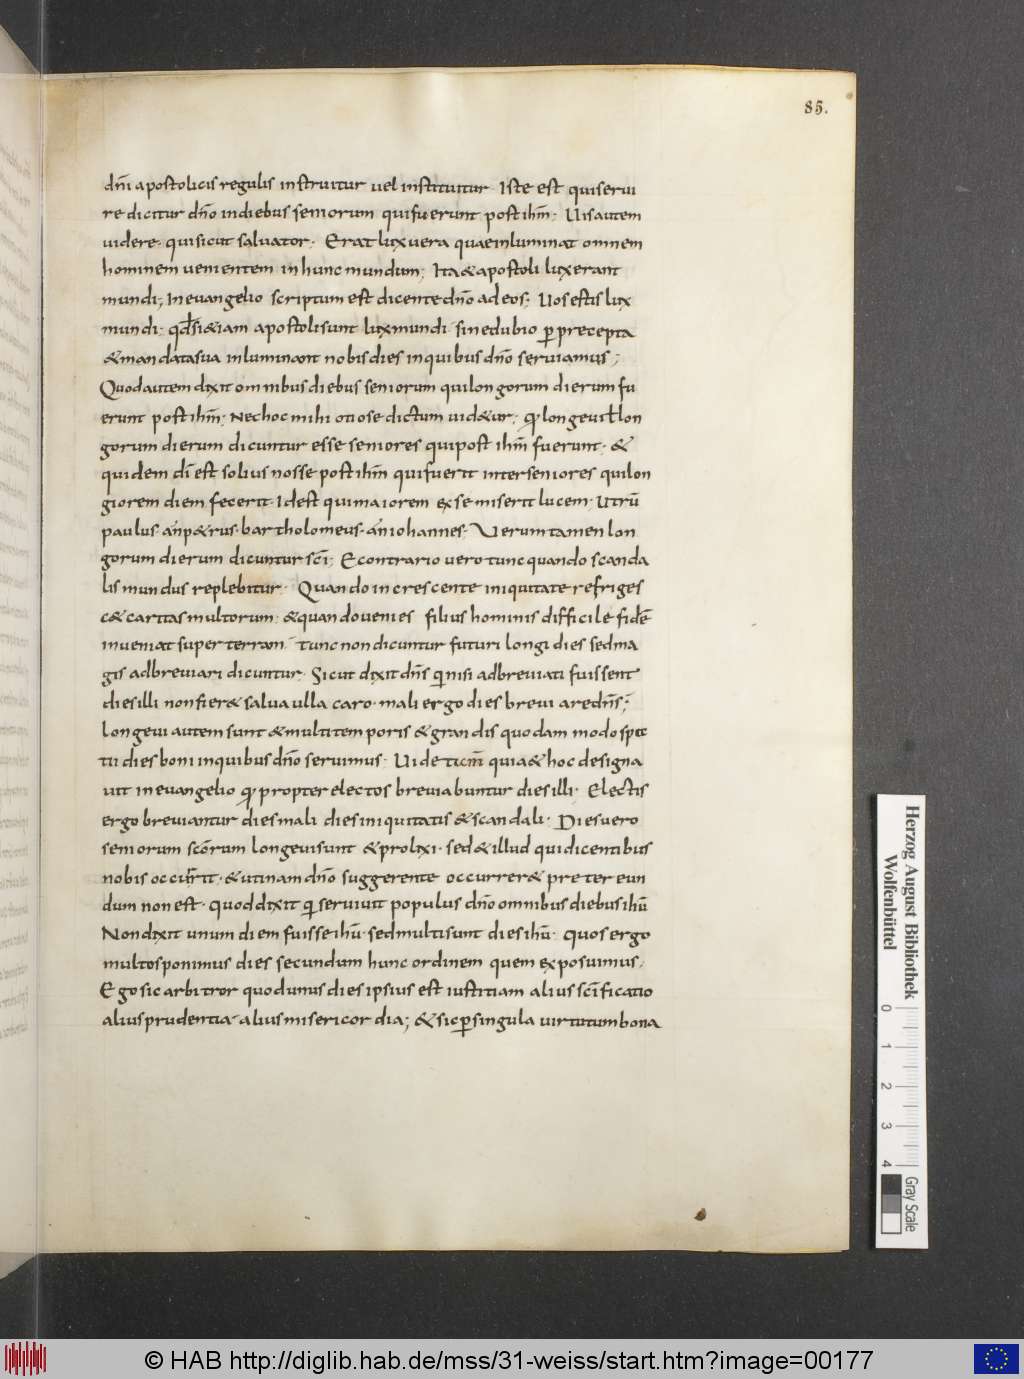 85.
dñi apostolicis regulis instruitur uel instituitur· Iste est qui serui
re dicitur dño in diebus seniorum qui fuerunt post ihm̄· Uis autem
uidere· qui sicut saluator· Erat lux uera quae inluminat omnem
hominem uenientem in hunc mundum; Ita & apostoli luxerant
mundi; In euangelio scriptum est dicente dño ad eos; Uos estis lux
mundi· qd̄ si & iam apostoli sunt lux mundi sine dubio p precepta
& mandata sua inluminant nobis dies in quibus dño seruiamus;
Quod autem dixit omnibus diebus seniorum qui longorum dierum fu
erunt post ihm̄; Nec hoc mihi otiose dictum uid&ur; longeui l lon
gorum dierum dicuntur esse seniores qui post ihm̄ fuerunt· &
quidem dī est solius nosse post ihm̄ qui fuerit inter seniores qui lon
giorem diem fecerit· Id est qui maiorem ex se miserit lucem; Utrū
paulus· an p&rus· bartholomeus· an iohannes· Uerumtamen lon
gorum dierum dicuntur scī; E contrario uero tunc quando scanda
lis mundus replebitur· Quando increscente iniquitate refriges
c& caritas multorum; & quando uenies filius hominis difficile fidē
inueniat super terram tunc non dicuntur futuri longi dies sed ma
gis adbreuiari dicuntur· Sicut dixit dñs q nisi adbreuiati fuissent
dies illi non fier& salua ulla caro· mali ergo dies breui are dñs;
Longeui autem sunt & multi temporis & grandis quodam modo spa
tii dies boni in quibus dño seruimus· Uide quia & hoc designa
uit in euangelio propter electos breuiabuntur dies illi· Electis
ergo breuiantur dies mali dies iniquitatis & scandali· Dies uero
seniorum scōrum longeui sunt & prolixi· sed & illud qui dicentibus
nobis occurrit· & utinam dño suggerente occurrer& preter eun
dum non est· Quod dixit q seruiuit populus dño omnibus diebus ihū
Non dixit unum diem fuisse ihū· sed multi sunt dies ihū· Quos ergo
multos ponimus dies secundum hunc ordinem quem exposuimus·
Ego sic arbitror quod unus dies ipsius est iustitiam alius scīficatio
alius prudentia· alius misericordia; & sic p singula uirtutum bona
Herzog August Bibliothek
Wolfenbüttel
0 1 2 3 4
Gray Scale
© HAB http://diglib.hab.de/mss/31-weiss/start.htm?image=00177